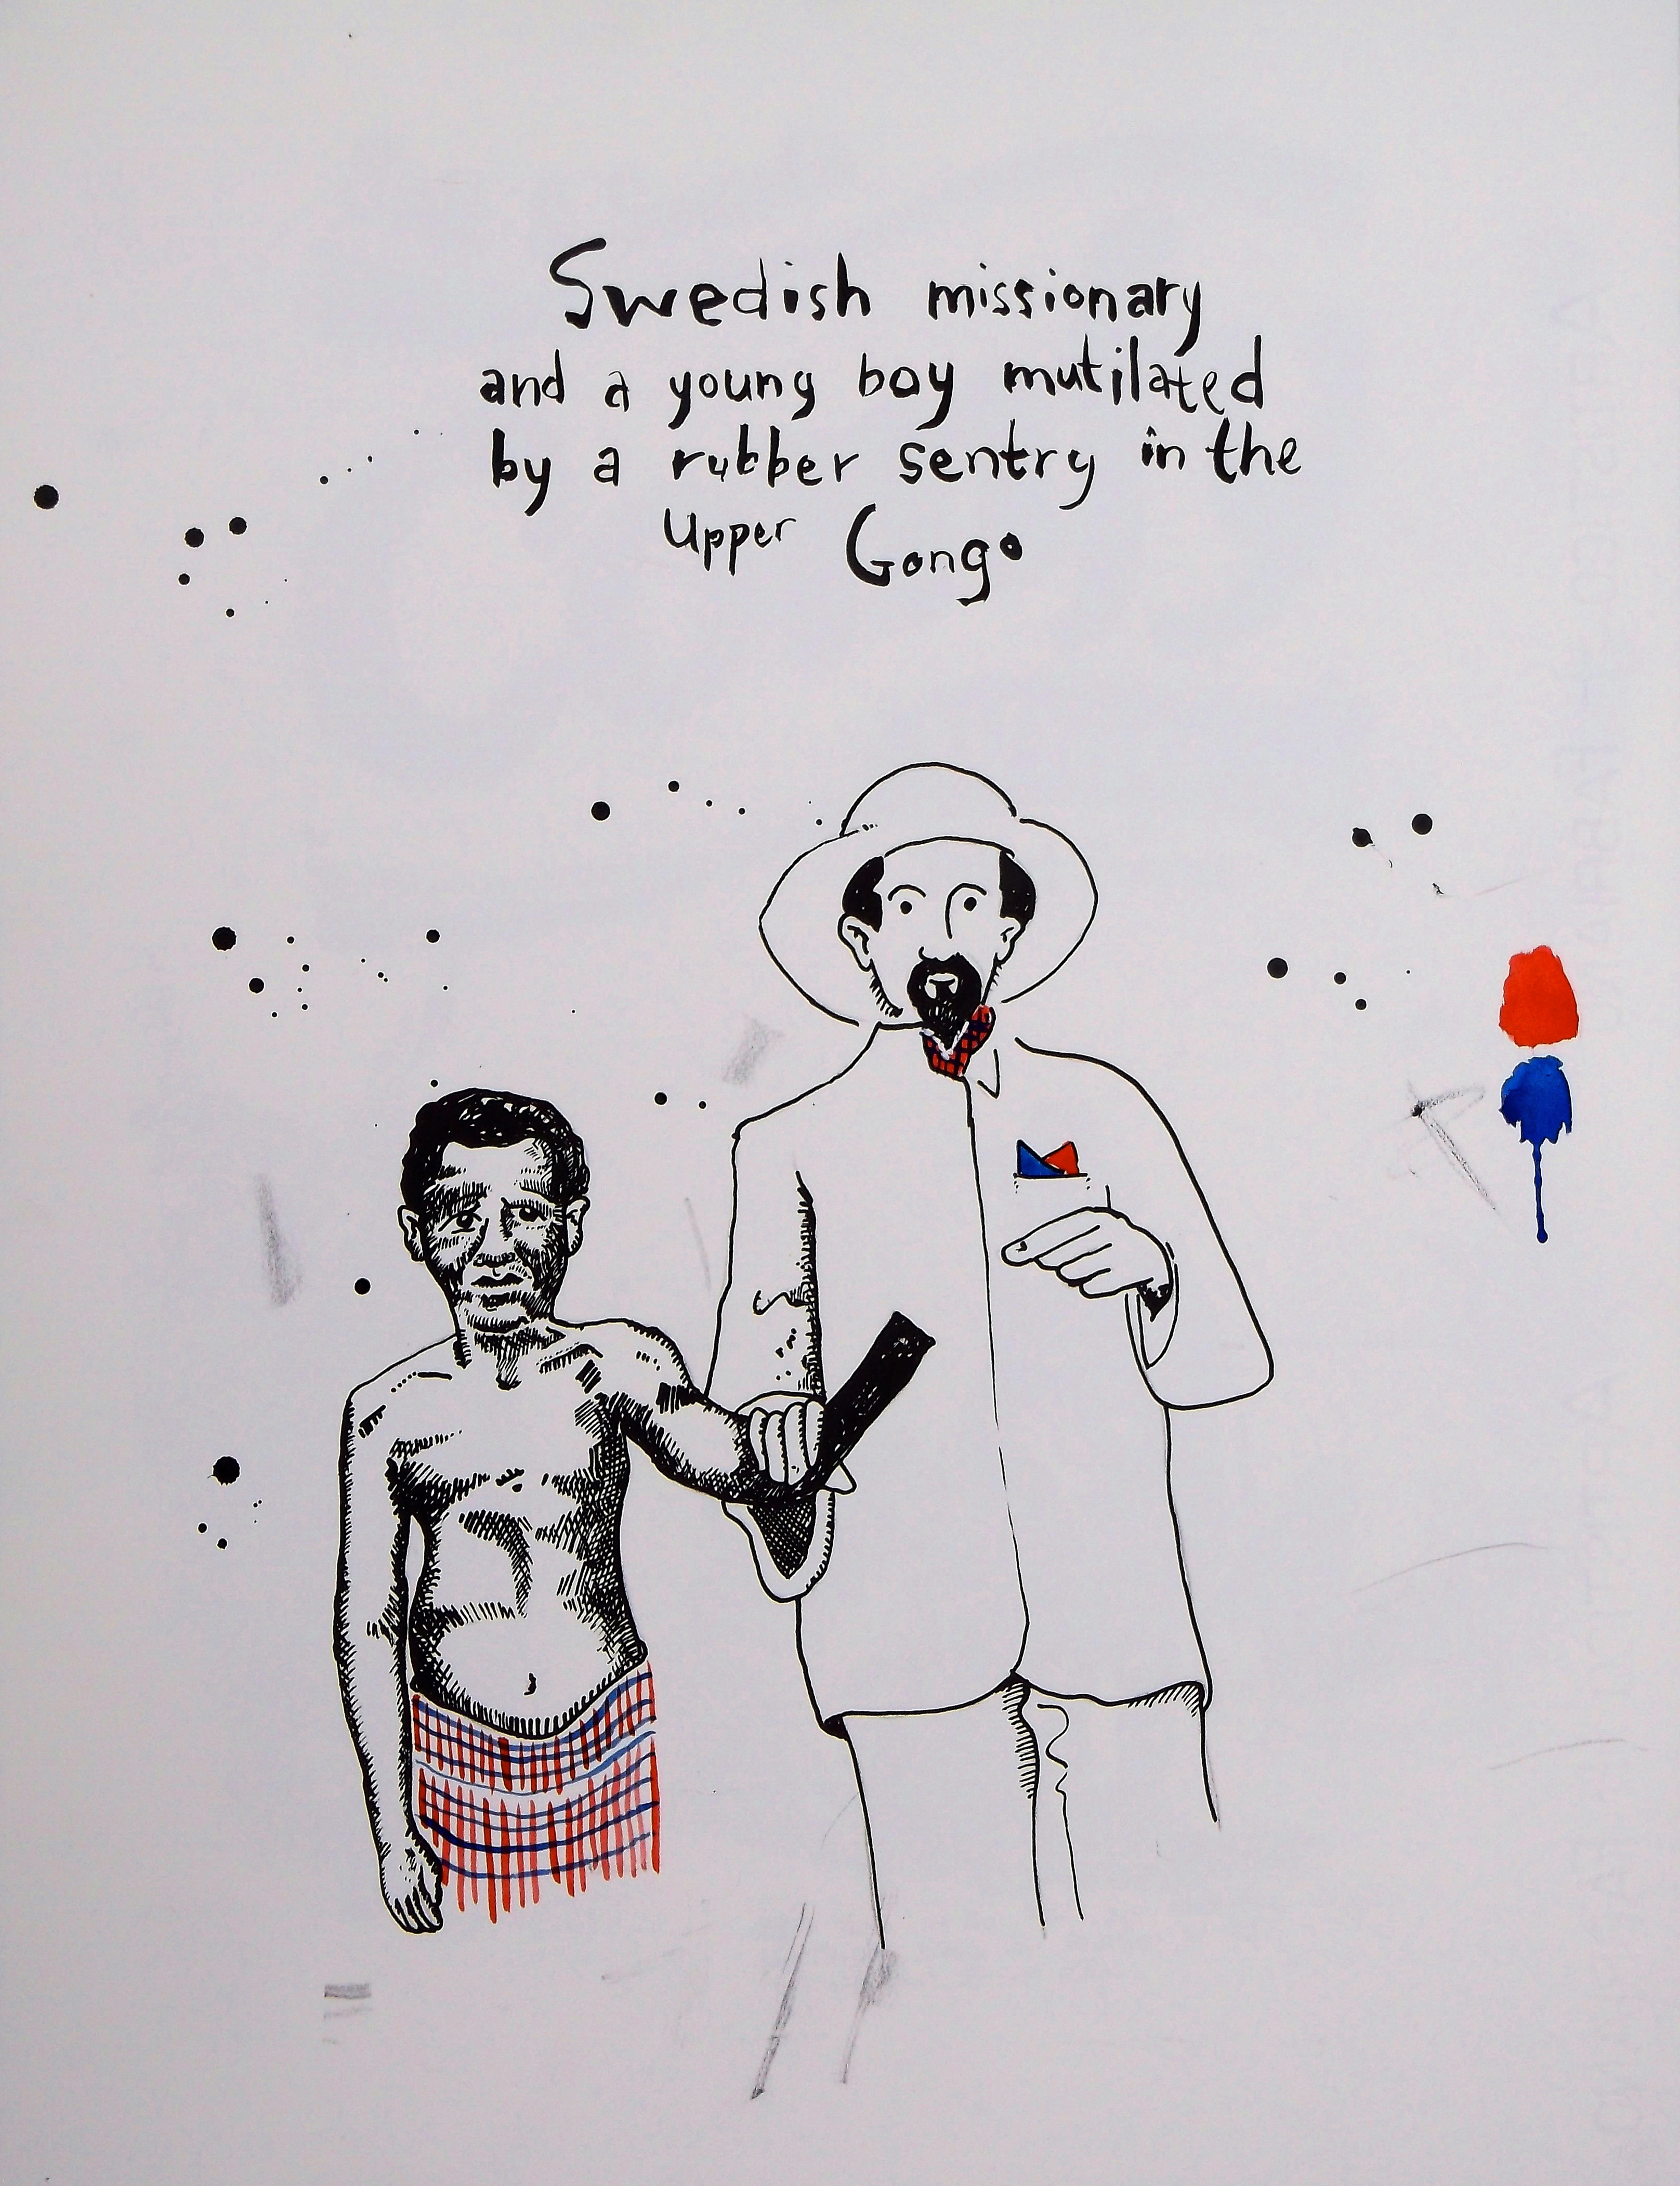 Swedish missionary
and a young boy mutilated
by a rubber sentry in the
Upper Gongo